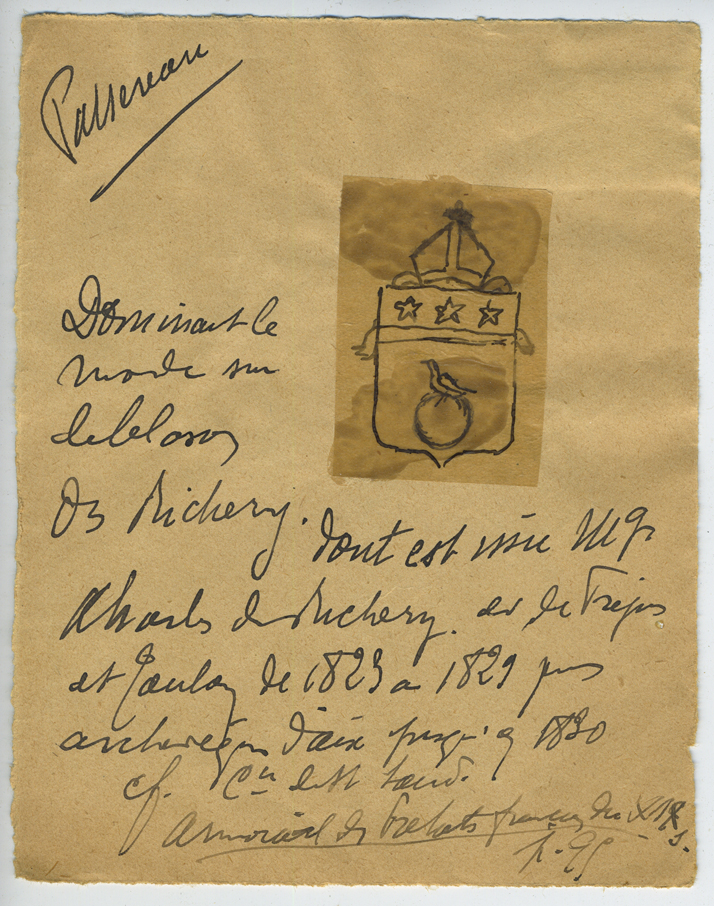 Passereau
Dominant le
monde sur
le blason
De Richery.
dont est issu Mgr
Charles de Richery. ev de Fréjus
et Toulon de 1823 a 1829 puis
archevêque d'aix jusqu'a 1830
cf. Cte de St Saud.
Armorial des Prélats français du XIX s.
p.